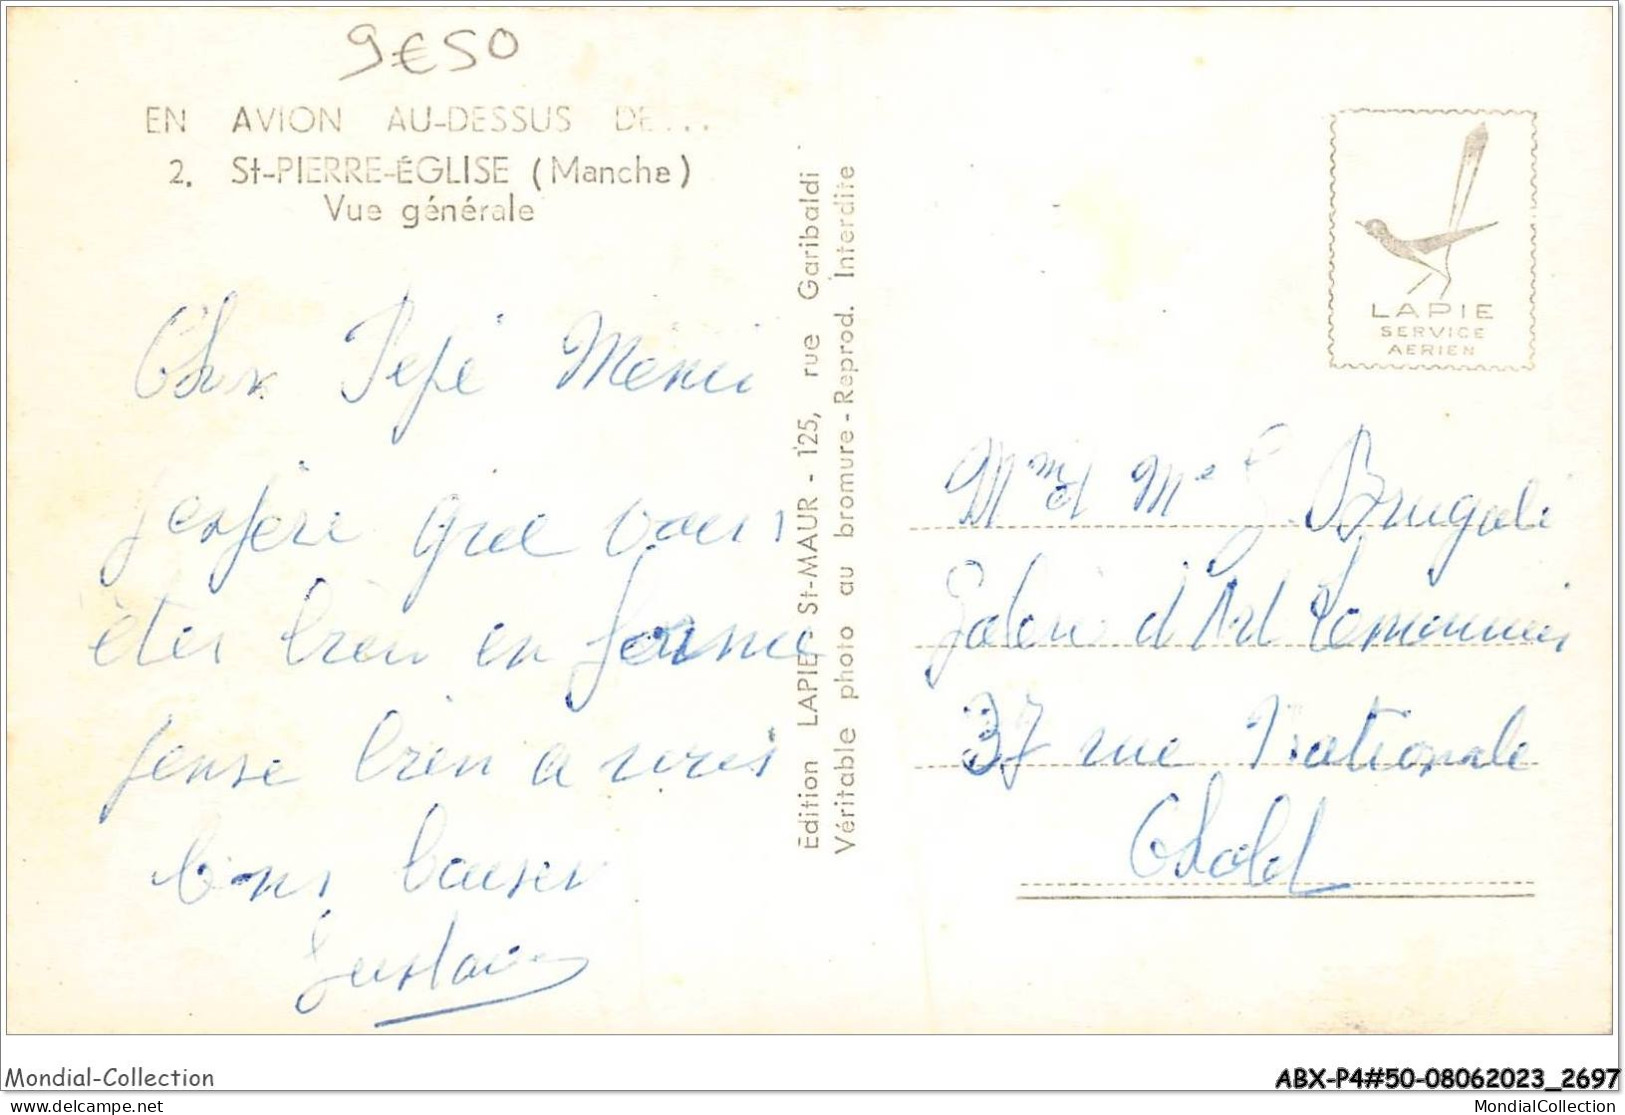 9€50
EN AVION AU-DESSUS DE...
2. St-PIERRE-ÉGLISE (Manche)
Vue générale
Cher Pepé Memei
j'espère que vous
êtes bien en forme
pense bien a vous
bons baiser
Gustave
Edition LAPIE - St-MAUR - 125, rue Garibaldi
Véritable photo au bromure - Reprod. Interdite
LAPIE
SERVICE
AERIEN
Mr et Me Brugali
Galerie d'Art
37 rue Nationale
Cholet
Mondial-Collection
ABX-P4#50-08062023_2697
www.delcampe.net
MondialCollection